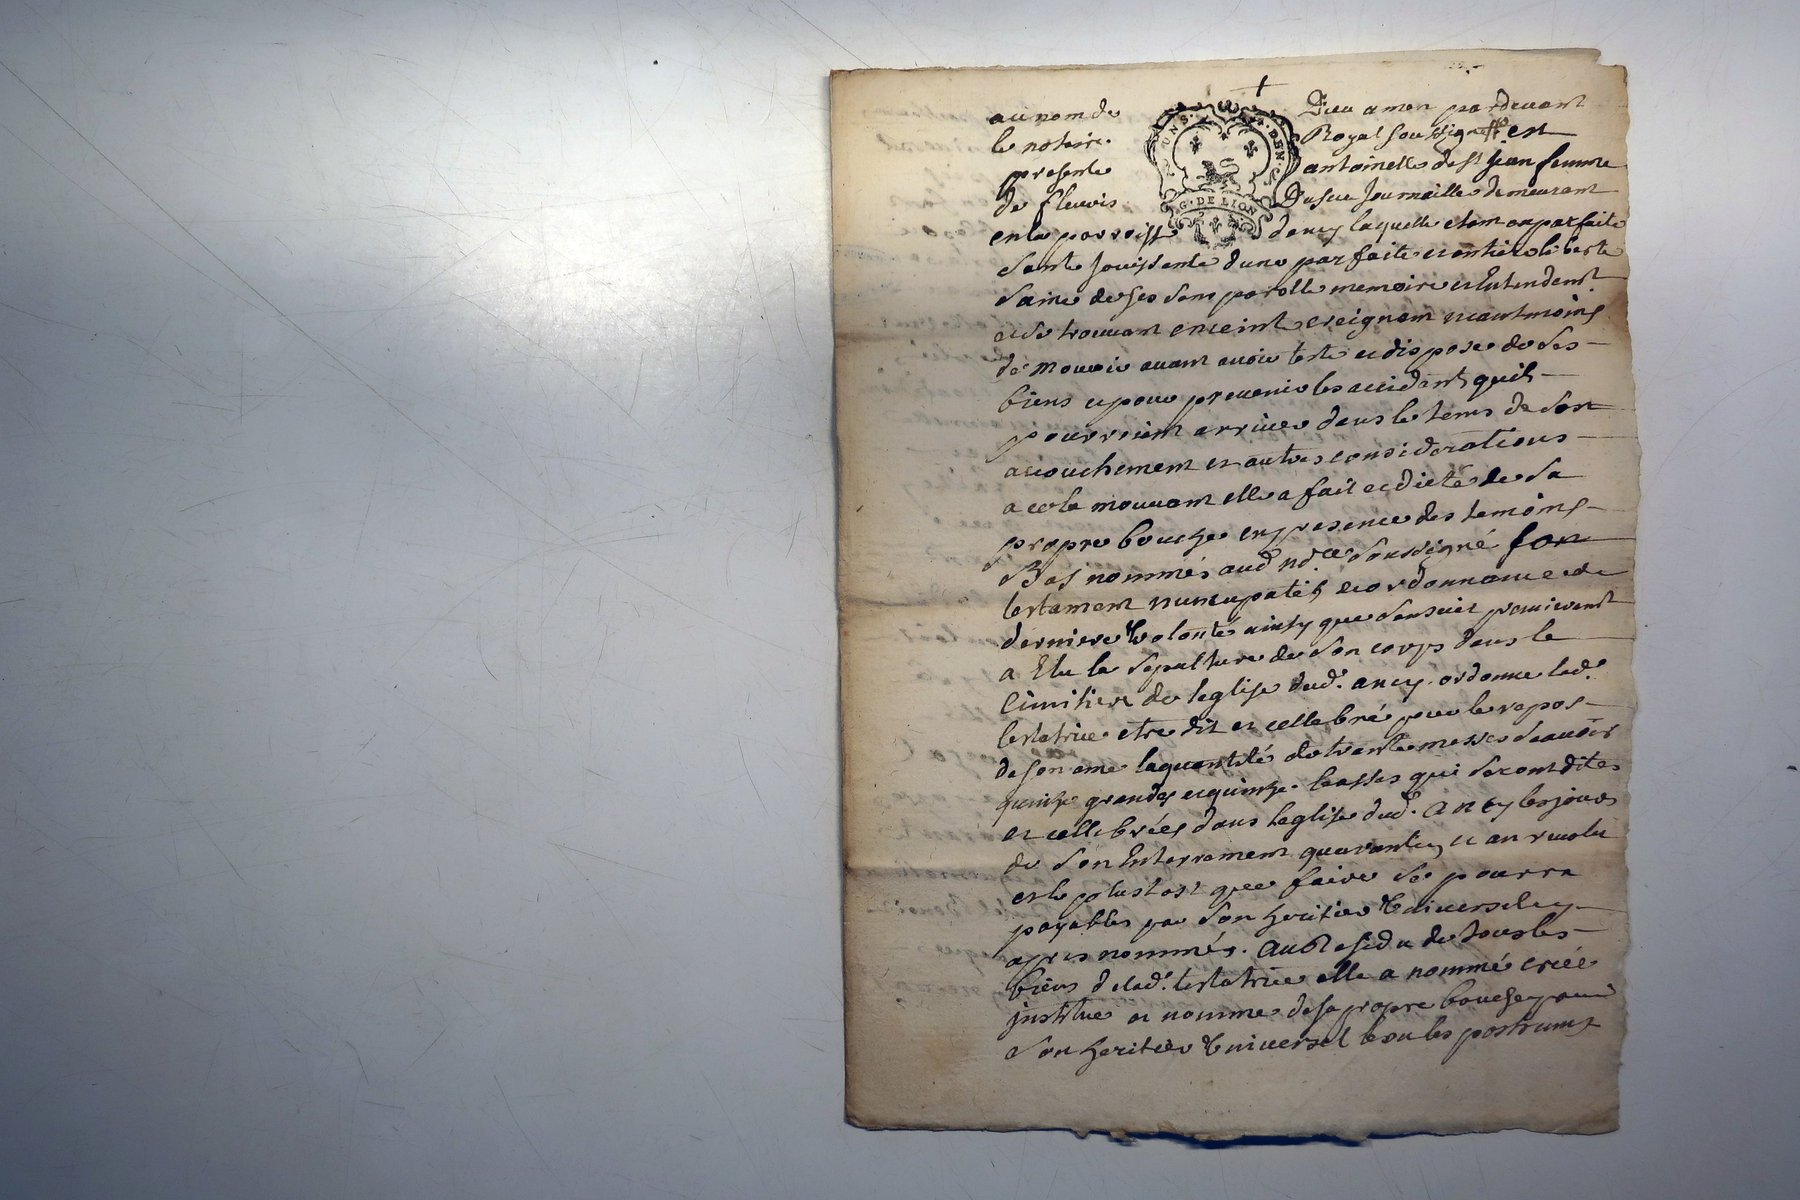 au nom de Dieu amen par devant
le notaire Royal soussigné est
presente antoinette de st jean femme
de fleuris Dufue Journaillé demeurant
en la parroisse dancy laquelle etant en parfaite
sante Jouissante dune parfaite et entiere liberté
saine de ses sens parolle memoire et Entendemt.
et se trouvant enceinte creignant neantmoins
de mourir avant avoir testé et disposé de ses
biens et pour prevenir les accidents quil
pourroient arriver dans le tems de son
accouchement et autres considerations
a ce la mouvant elle a fait et dicté de sa
propre bouche en presence des temoins
Bas nommés aud. nore. soussigné son
testament nuncupatif et ordonnance de
derniere Volonté ainsy que sensuit premierement
a Elu la sepulture de son corps dans le
Cimitiere de leglise dud. ancy. ordonne lad.
testatrice etre dit et cellebré pour le repos
de son ame la quantité de trante messes scavoir
quinze grandes et quinze basses qui seront dites
et cellebrées dans leglise dud. ancy les jours
de son Enterrement quarantin et an revolu
et le plustost que faire se pourra
payables par son heritier Universel cy
apres nommés. au Residu de tous les
biens de lad. testatrice elle a nommé créé
institue et nomme de sa propre bouche pour
son heritier Universel le ou les postumes
G. DE LION